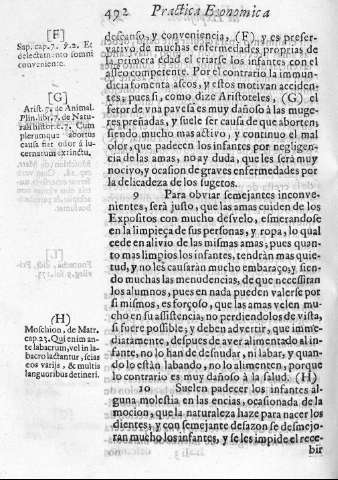 492 Practica Economica
[F]
Sap. cap. 7. ℣. 2. Et
delectamento somni
conveniente.
[G]
Arist. 7. de Animal.
Plin. libr. 7. de Natu-
rali histor. c. 7. Cum
plerumque abortus
causa fiet odor à lu-
cernarum extinctu,
(H)
Moschion, de Matr.
cap. 25. Qui enim an-
te labacrum, vel in la-
bacro lactantur, scias
eos varijs, & multis
languoribus detineri.
descanso, y conveniencia, (F) y es preser-
vativo de muchas enfermedades proprias de
la primera edad el criarse los infantes con el
asseo competente. Por el contrario la immun-
dicia fomenta ascos, y estos motivan acciden-
tes; pues si, como dize Aristoteles, (G) el
fetor de vna pavesa es muy dañoso à las muge-
res preñadas, y suele ser causa de que aborten,
siendo mucho mas activo, y continuo el mal
olor, que padecen los infantes por negligen-
cia de las amas, no ay duda, que les será muy
nocivo, y ocasion de graves enfermedades por
la delicadeza de los sugetos.
9 Para obviar semejantes inconve-
nientes, será justo, que las amas cuiden de los
Expositos con mucho desvelo, esmerandose
en la limpieça de sus personas, y ropa, lo qual
cede en alivio de las mismas amas; pues quan-
to mas limpios los infantes, tendràn mas quie-
tud, y no les causaràn mucho embaraço, y sien-
do muchas las menudencias, de que necessitan
los alumnos, pues en nada pueden valerse por
si mismos, es forçoso, que las amas velen mu-
cho en su assistencia, no perdiendolos de vista,
si fuere possible; y deben advertir, que imme-
diatamente, despues de aver alimentado al in-
fante, no lo han de desnudar, ni labar, y quan-
do lo estàn labando, no lo alimenten, porque
lo contrario es muy dañoso à la salud. (H)
10 Suelen padecer los infantes al-
guna molestia en las encias, ocasionada de la
mocion, que la naturaleza haze para nacer los
dientes; y con semejante desazon se desmejo-
ran mucho los infantes, y se les impide el rece-
bir